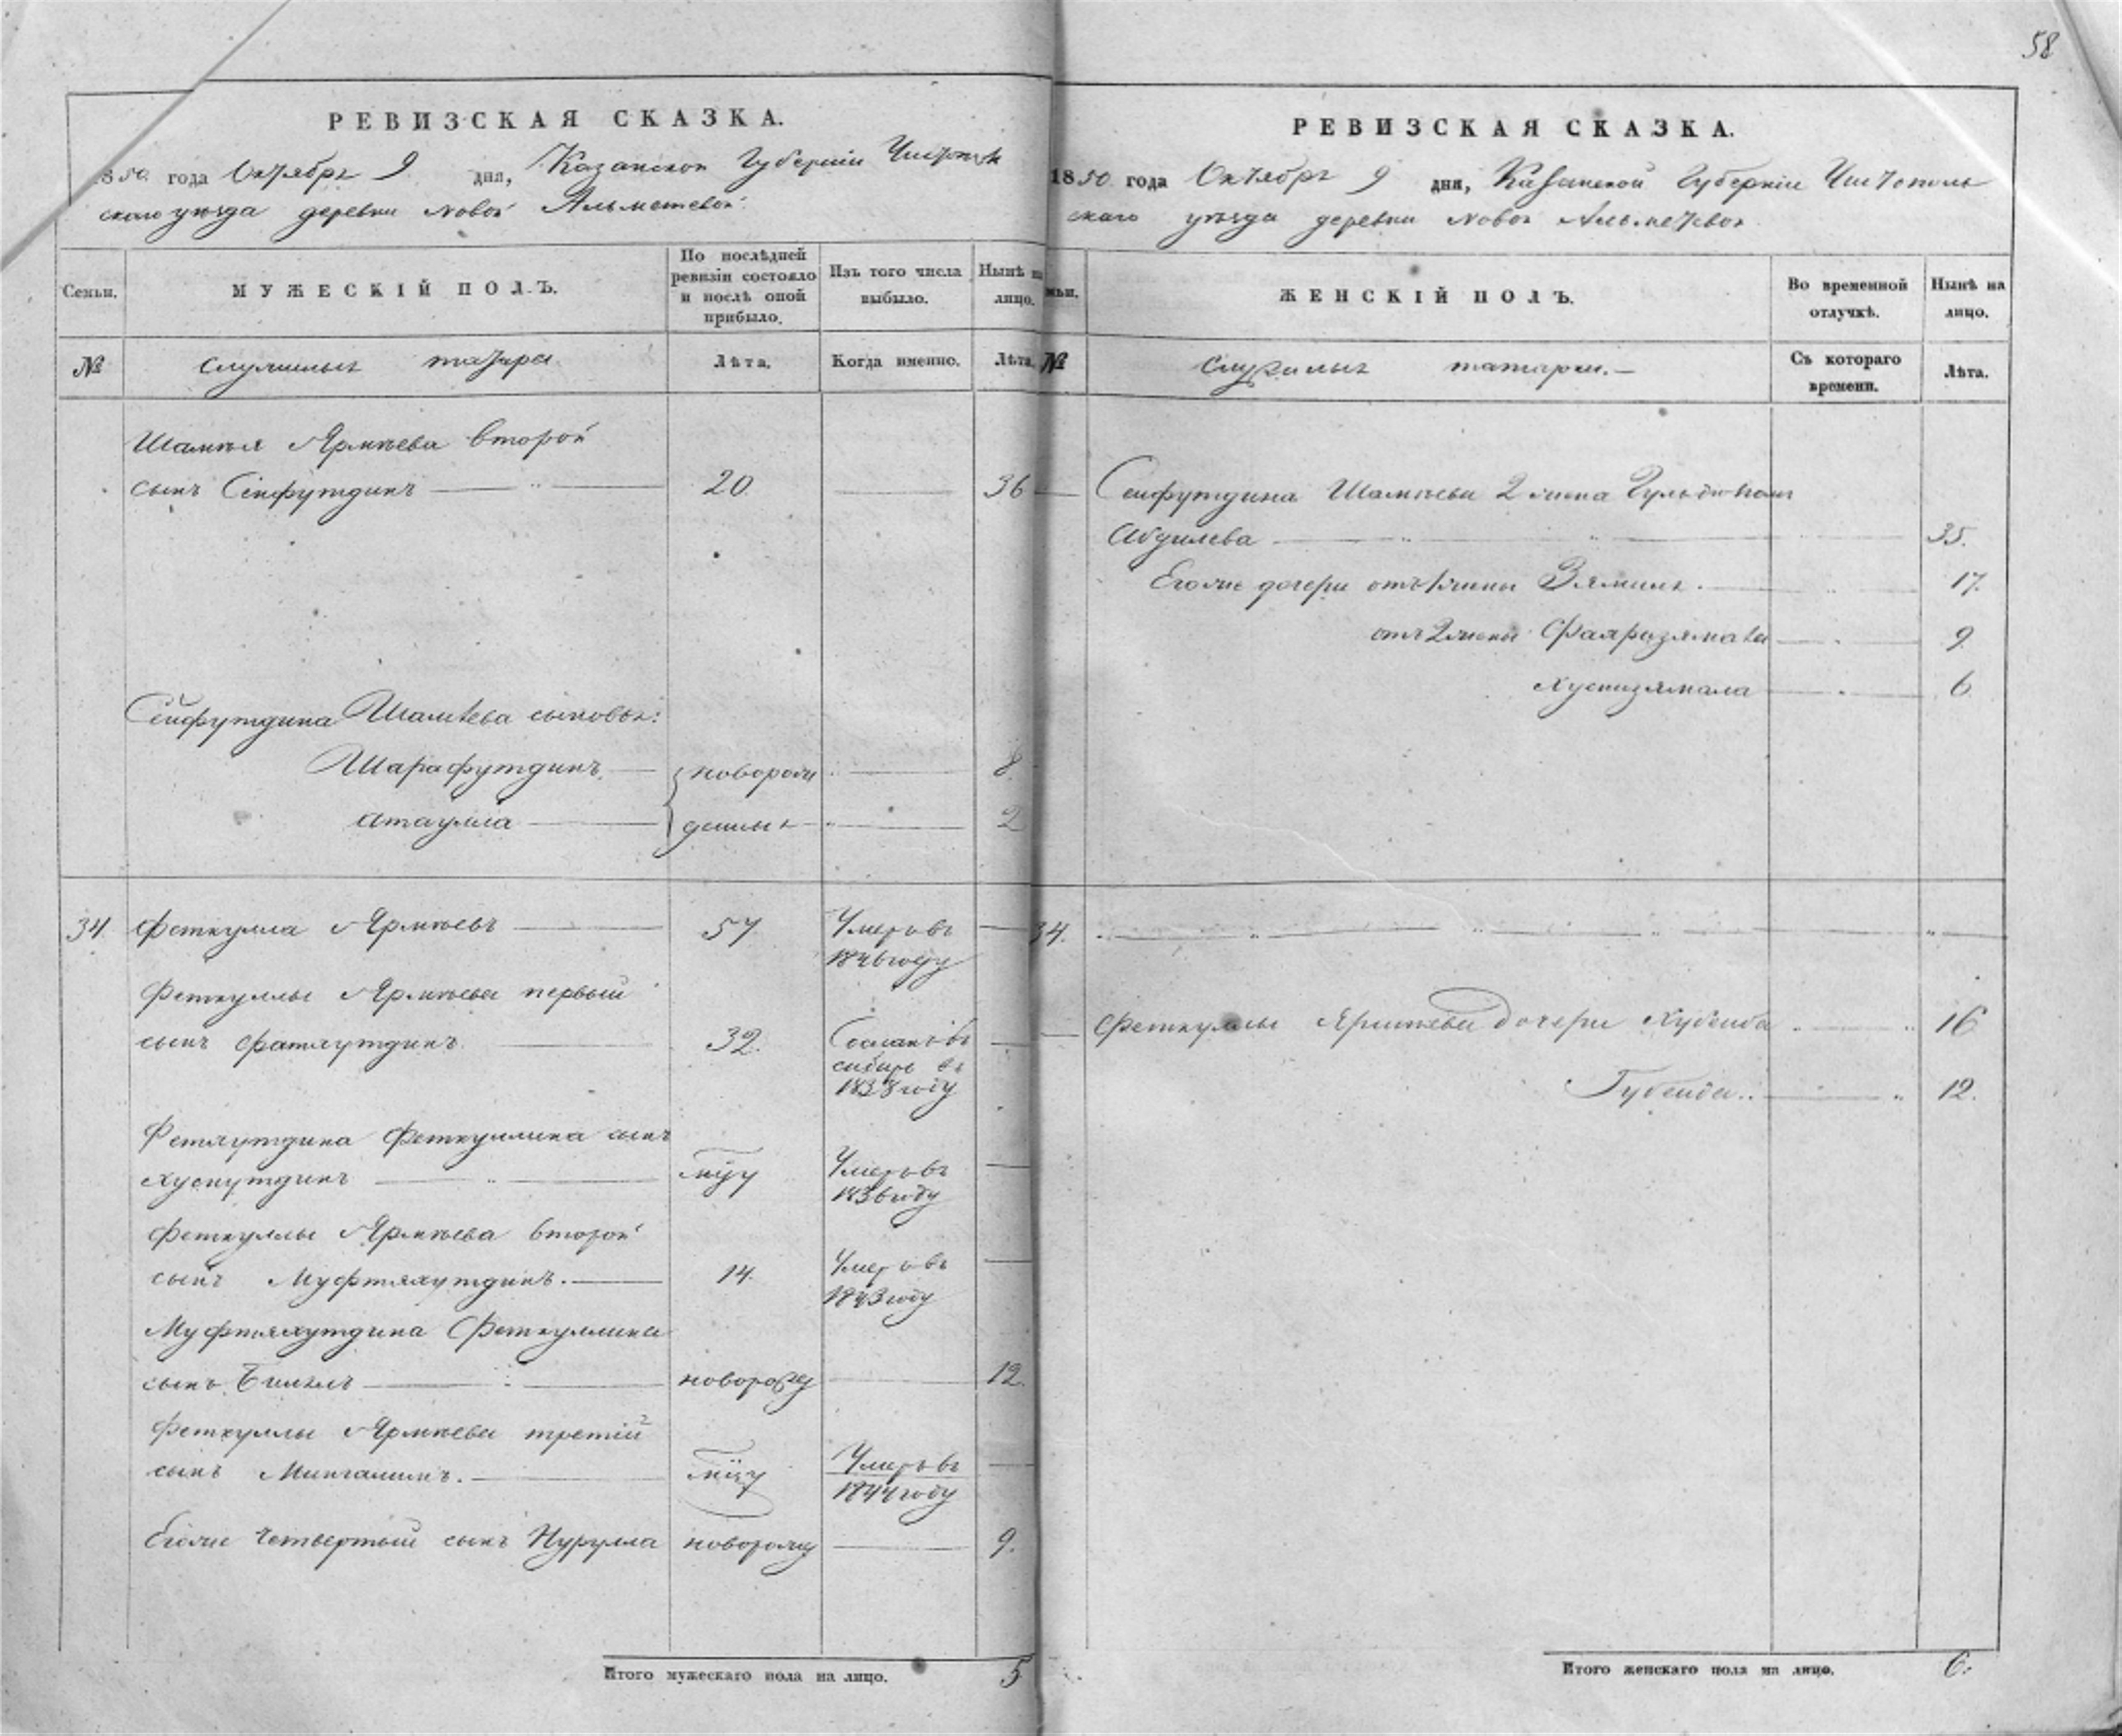 58
РЕВИЗСКАЯ СКАЗКА.
1850 года Октября 9 дня, Казанской Губерніи Чистополь
скаго уѣзда деревни новой Альметевой.
Семьи.
МУЖЕСКІЙ ПОЛЪ.
По послѣдней ревизіи состояло и послѣ оной прибыло.
Изъ того числа выбыло.
Нынѣ на лицо.
№
служилыхъ татаръ
Лѣта.
Когда именно.
Лѣта.
Шамкея Ярмкеева второй
сынъ Сейфутдинъ 20. 36
Сейфутдина Шамкеева сыновья:
Шарафутдинъ новорож 8.
Атаулла денные 2
34 Феткулла Ярмкеевъ 57 Умеръ въ
1846 году
Феткуллы Ярмкеева первый
сынъ Фатхутдинъ 32. Сосланъ въ
сибирь въ
1838 году
Фетхутдина Феткуллина сынъ
Хуснутдинъ Умеръ въ
1836 году
Феткуллы Ярмкеева второй
сынъ Муфтяхутдинъ. 14. Умеръ въ
1843 году
Муфтяхутдина Феткуллина
сынъ новорожд 12.
Феткуллы Ярмкеева третій
сынъ Мингалимъ. Умеръ въ
1844 году
Егоже четвертый сынъ Нурулла новорожд 9.
Итого мужескаго пола на лицо. 5
РЕВИЗСКАЯ СКАЗКА.
1850 года Октября 9 дня, Казанской Губерніи Чистополь
скаго уѣзда деревни новой Альметевой
Семьи.
ЖЕНСКІЙ ПОЛЪ.
Во временной отлучкѣ.
Нынѣ на лицо.
№
служилыхъ татаръ.
Съ котораго времени.
Лѣта.
Сейфутдина Шамкеева 2 жена
Абдулева 35.
Егоже дочери отъ 1 жены Зямиля. 17.
отъ 2 жены 9
Хуснизямала 6
34.
Феткуллы Ярмкеева дочери Хубейда 16
Губейда.. 12.
Итого женскаго пола на лицо. 6.